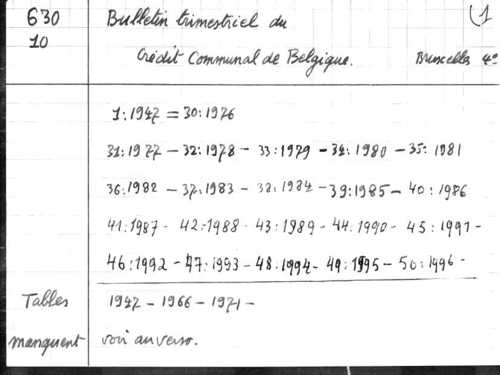 630 Bulletin trimestriel du (1
10 Crédit Communal de Belgique. Bruxelles 4°
1:1947 = 30:1976
31:1977 - 32:1978 - 33:1979 - 34:1980 - 35:1981
36:1982 - 37:1983 - 38:1984 - 39:1985 - 40:1986
41:1987 - 42:1988 - 43:1989 - 44:1990 - 45:1991 -
46:1992 - 47:1993 - 48.1994 - 49:1995 - 50:1996 -
Tables 1947 - 1966 - 1971 -
manquent voir au verso.